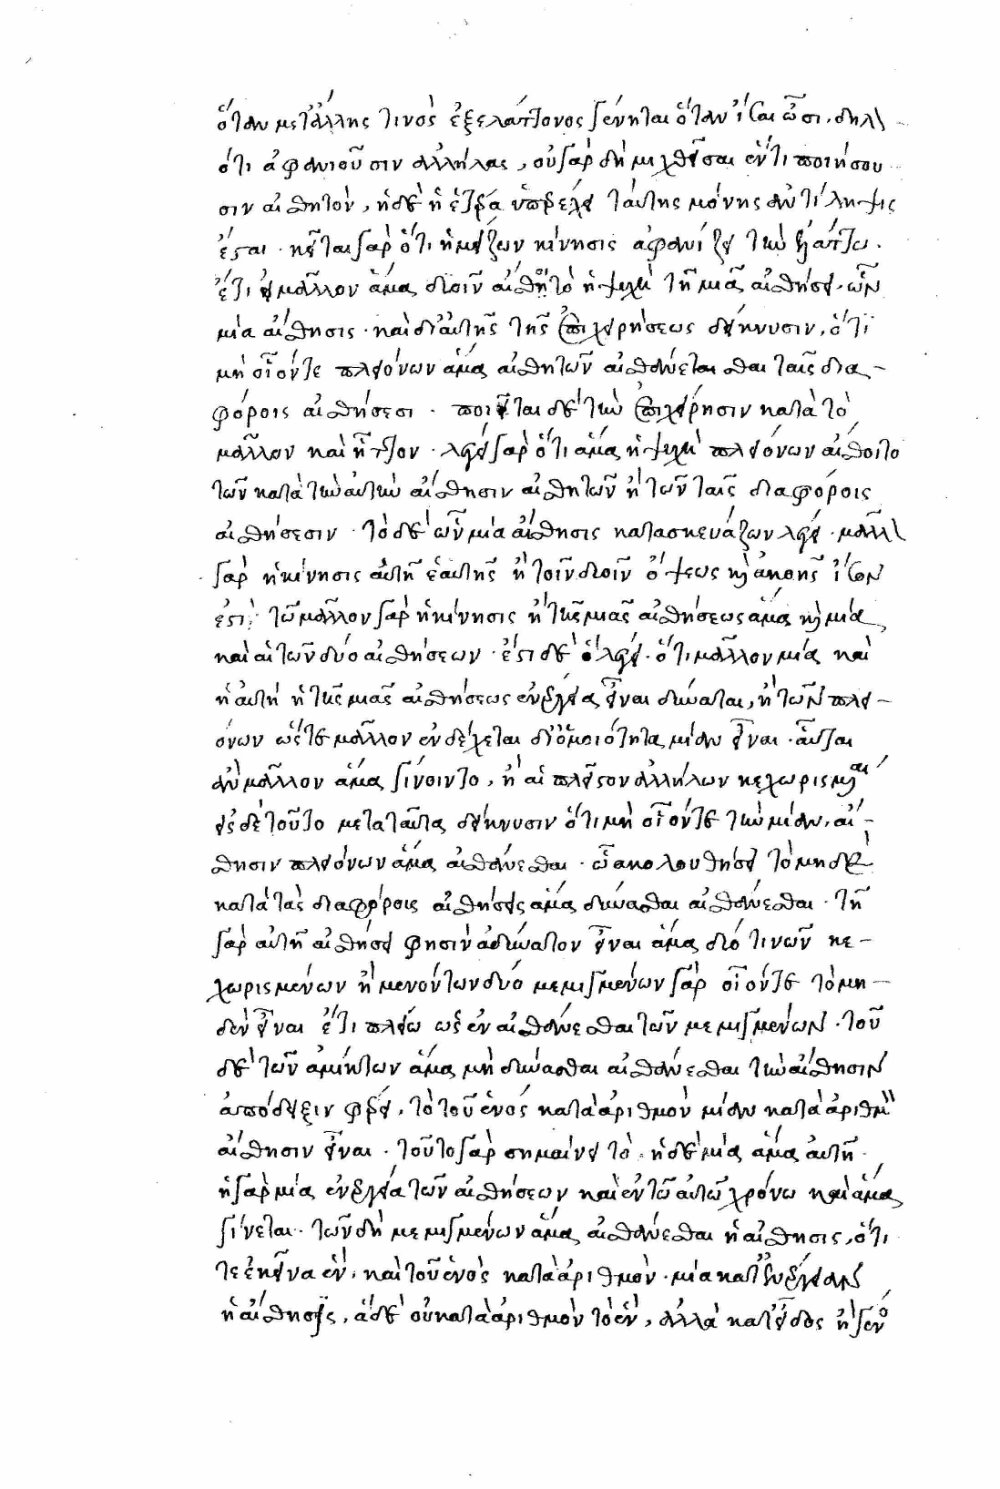 ὅταν μετ' ἄλλης τινὸς ἐξ ἐλάττονος γένηται ὅταν ἴσαι ὦσι, δηλ
ὅτι ἀφανιοῦσιν ἀλλήλας, οὐ γὰρ δὴ μιχθεῖσαι ἕν τι ποιήσου
σιν αἰσθητὸν, ἢ δὲ ἡ ἑτέρα ὑπερέχει ταύτης μόνης ἀντίληψις
ἔσται · κεῖται γὰρ ὅτι ἡ μείζων κίνησις ἀφανίζει τὴν ἐλάττω.
ἔτι εἰ μᾶλλον ἅμα δυοῖν αἴσθοιτο ἡ ψυχὴ τῇ μιᾷ αἰσθήσει · ὧν
μία αἴσθησις · καὶ δι' αὐτῆς τῆς ἐπιχειρήσεως δείκνυσιν, ὅτι
μὴ οἷόν τε πλειόνων ἅμα αἰσθητῶν αἰσθάνεσθαι ταῖς δια-
φόροις αἰσθήσεσι · ποιεῖται δὲ τὴν ἐπιχείρησιν κατὰ τὸ
μᾶλλον καὶ ἧττον · λέγει γὰρ ὅτι ἅμα ἡ ψυχὴ πλειόνων αἴσθοιτο
τῶν κατὰ τὴν αὐτὴν αἴσθησιν αἰσθητῶν ἢ τῶν ταῖς διαφόροις
αἰσθήσεσιν · τὸ δὲ ὧν μία αἴσθησις κατασκευάζων λέγει · μᾶλλ
γὰρ ἡ κίνησις αὐτὴ ἑαυτῆς ἢ τοῖν δυοῖν ὄψεως καὶ ἀκοῆς ἴσον
ἐστὶ τῷ μᾶλλον γὰρ ἡ κίνησις ἡ τῆς μιᾶς αἰσθήσεως ἅμα καὶ μία,
καὶ αἱ τῶν δύο αἰσθήσεων · ἔστι δὲ ὃ λέγει · ὅτι μᾶλλον μία καὶ
ἡ αὐτὴ ἡ τῆς μιᾶς αἰσθήσεως ἐνέργεια εἶναι δύναται, ἢ τῶν πλει-
όνων ὥστε μᾶλλον ἐνδέχεται δι' ὁμοιότητα μίαν εἶναι · αὗται
ἂν μᾶλλον ἅμα γίνοιντο, ἢ αἱ πλεῖστον ἀλλήλων κεχωρισμέναι
εἰς δὲ τοῦτο μετὰ ταῦτα δείκνυσιν ὅτι μὴ οἷόν τε τὴν μίαν, αἴ-
σθησιν πλειόνων ἅμα αἰσθάνεσθαι · ᾧ ἀκολουθήσει τὸ μηδὲ
κατὰ τὰς διαφόροις αἰσθήσεις ἅμα δύνασθαι αἰσθάνεσθαι · τῇ
γὰρ αὐτῇ αἰσθήσει φησὶν ἀδύνατον εἶναι ἅμα δύο τινῶν κε-
χωρισμένων ἢ μενόντων δύο μεμιγμένων γὰρ οἷόν τε τὸ μη-
δὲν εἶναι ἔτι πλείω ὡς ἓν αἰσθάνεσθαι τῶν μεμιγμένων · τοῦ
δὲ τῶν ἀμίκτων ἅμα μὴ δύνασθαι αἰσθάνεσθαι τὴν αἴσθησιν
ἀπόδειξιν φέρει, τὸ τοῦ ἑνὸς κατὰ ἀριθμὸν μίαν κατὰ ἀριθμὸν
αἴσθησιν εἶναι · τοῦτο γὰρ σημαίνει τὸ · ἡ δὲ μία ἅμα αὐτῇ ·
ἡ γὰρ μία ἐνέργεια τῶν αἰσθήσεων καὶ ἐν τῷ αὐτῷ χρόνῳ καὶ ἅμα
γίνεται · τῶν δὴ μεμιγμένων ἅμα αἰσθάνεσθαι ἡ αἴσθησις, ὅτι
τε ἐκεῖνα ἓν · καὶ τοῦ ἑνὸς κατὰ ἀριθμὸν · μία κατ' ἐνέργειαν
ἡ αἴσθησις, ἃ δὲ οὐ κατὰ ἀριθμὸν τὸ ἓν, ἀλλὰ κατ' εἶδος ἢ γένο